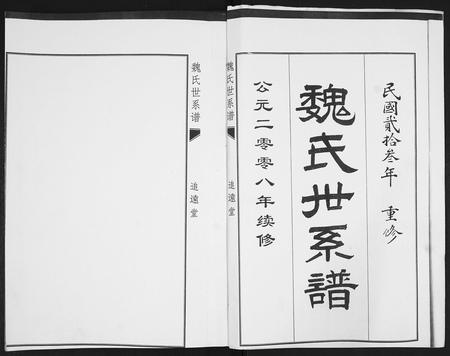 民國貳拾叁年 重修
魏氏世系譜
公元二零零八年续修
魏氏世系谱
追遠堂
魏氏世系谱
追遠堂